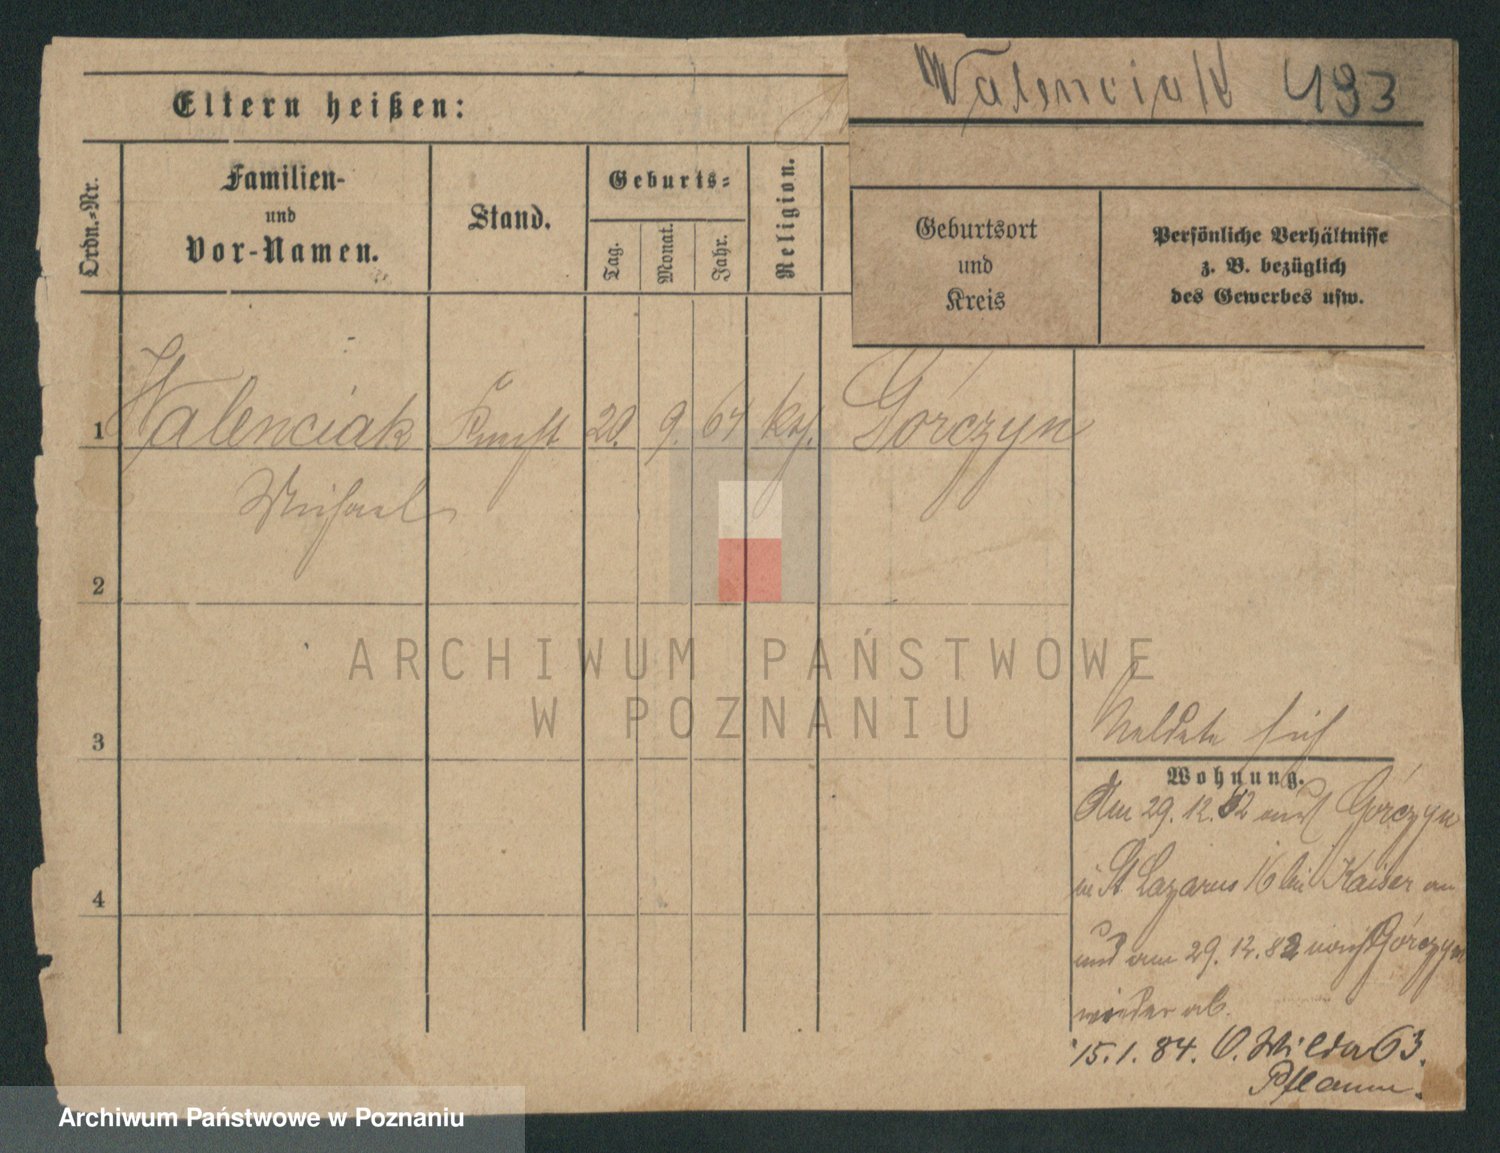 Walenciak 493
Eltern heißen:
Ordn.-Nr.
Familien-
und
Vor-Namen.
Stand.
Geburts-
Tag.
Monat.
Jahr.
Religion.
Geburtsort
und
Kreis
Persönliche Verhältnisse
z. B. bezüglich
des Gewerbes usw.
1 Walenciak Knecht 20. 9. 64 kth. Górczyn
Michael
2
3
4
Meldete sich
Wohnung.
Am 29. 12. 82 aus Górczyn
in St. Lazarus 16 bei Kaiser an
und am 29. 12. 82 nach Górczyn
wieder ab.
15. 1. 84. O. Wilda 63.
Pflaum.
ARCHIWUM PAŃSTWOWE
W POZNANIU
Archiwum Państwowe w Poznaniu